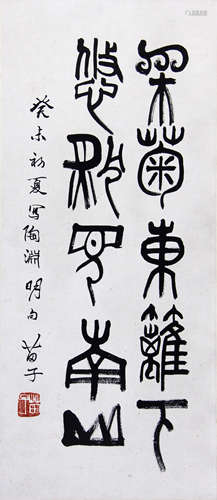 采菊東籬下
悠然見南山
癸未初夏写陶淵明句 苗子